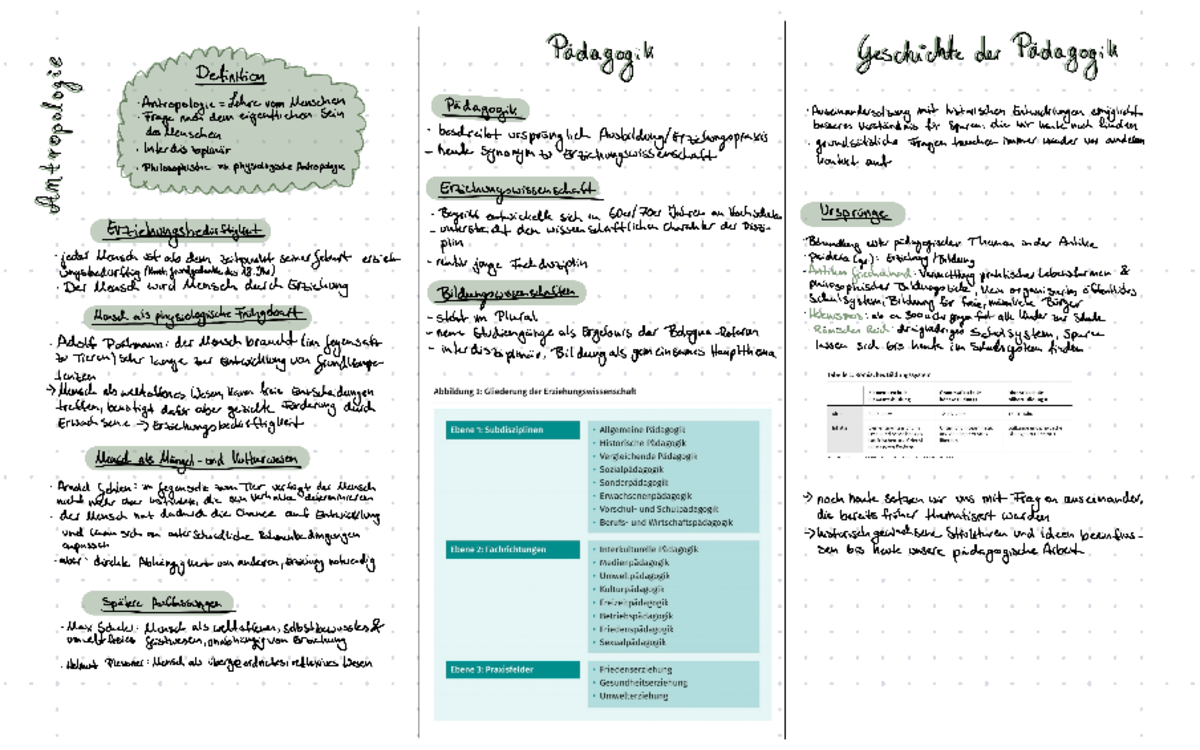 Amtropologie
Definition
· Antropologie = Lehre vom Menschen
· Frage nach dem eigentlichen Sein
des Menschen
· Interdisziplinär
· Philosophische physiologische Antropologie
Erziehungsbedürftigkeit
· jeder Mensch ist ab dem Zeitpunkt seiner Geburt erzieh-
ungsbedürftig
· Der Mensch wird Mensch durch Erziehung
Mensch als physiologische Frühgeburt
· Adolf Portmann: der Mensch braucht (im Gegensatz
zu Tieren) sehr lange zur Entwicklung von Grundkompe-
tenzen
→ Mensch als weltoffenes Wesen, kann freie Entscheidungen
treffen, benötigt dafür aber gezielte Förderung durch
Erwachsene → Erziehungsbedürftigkeit
Mensch als Mängel- und Kulturwesen
· Arnold Gehlen: im Gegensatz zum Tier verfügt der Mensch
nicht mehr über Instinkte, die sein Verhalten determinieren
· der Mensch hat dadurch die Chance auf Entwicklung
und kann sich an unterschiedliche Lebensbedingungen
anpassen
· aber: direkte Abhängigkeit von anderen, Erziehung notwendig
Spätere Auffassungen
· Max Scheler: Mensch als weltoffenes, selbstbewusstes &
umweltfreies Geistwesen, unabhängig von Erziehung
· Helmut Plessner: Mensch als übergeordnetes reflexives Wesen
Pädagogik
Pädagogik
· beschreibt ursprünglich Ausbildung/Erziehungspraxis
– heute Synonym zu Erziehungswissenschaft
Erziehungswissenschaft
· Begriff entwickelte sich in 60er/70er Jahren an Hochschulen
– unterstreicht den wissenschaftlichen Charakter der Diszi-
plin
– relativ junge Fachdisziplin
Bildungswissenschaften
– steht im Plural
– neue Studiengänge als Ergebnis der Bologna-Reform
– interdisziplinär, Bildung als gemeinsames Hauptthema
Abbildung 1: Gliederung der Erziehungswissenschaft
Ebene 1: Subdisziplinen
• Allgemeine Pädagogik
• Historische Pädagogik
• Vergleichende Pädagogik
• Sozialpädagogik
• Sonderpädagogik
• Erwachsenenpädagogik
• Vorschul- und Schulpädagogik
• Berufs- und Wirtschaftspädagogik
Ebene 2: Fachrichtungen
• Interkulturelle Pädagogik
• Medienpädagogik
• Umweltpädagogik
• Kulturpädagogik
• Freizeitpädagogik
• Betriebspädagogik
• Friedenspädagogik
• Sexualpädagogik
Ebene 3: Praxisfelder
• Friedenserziehung
• Gesundheitserziehung
• Umwelterziehung
Geschichte der Pädagogik
· Auseinandersetzung mit historischen Entwicklungen ermöglicht
besseres Verständnis für Spuren, die wir heute noch finden
· grundsätzliche Fragen tauchen immer wieder vor anderem
Kontext auf
Ursprünge
· Behandlung erster pädagogischer Themen in der Antike
· paideia (gr.): Erziehung/Bildung
· Antikes Griechenland: Vermittlung praktischer Lebensformen &
philosophischer Bildungsziele, kein organisiertes öffentliches
Schulsystem, Bildung für freie, männliche Bürger
· Hellenismus: ab ca 300 v.Chr gingen fast alle Kinder zur Schule
· Römisches Reich: dreigliedriges Schulsystem, Spuren
lassen sich bis heute im Schulsystem finden
→ noch heute setzen wir uns mit Fragen auseinander,
die bereits früher thematisiert wurden
→ historisch gewachsene Strukturen und Ideen beeinflus-
sen bis heute unsere pädagogische Arbeit